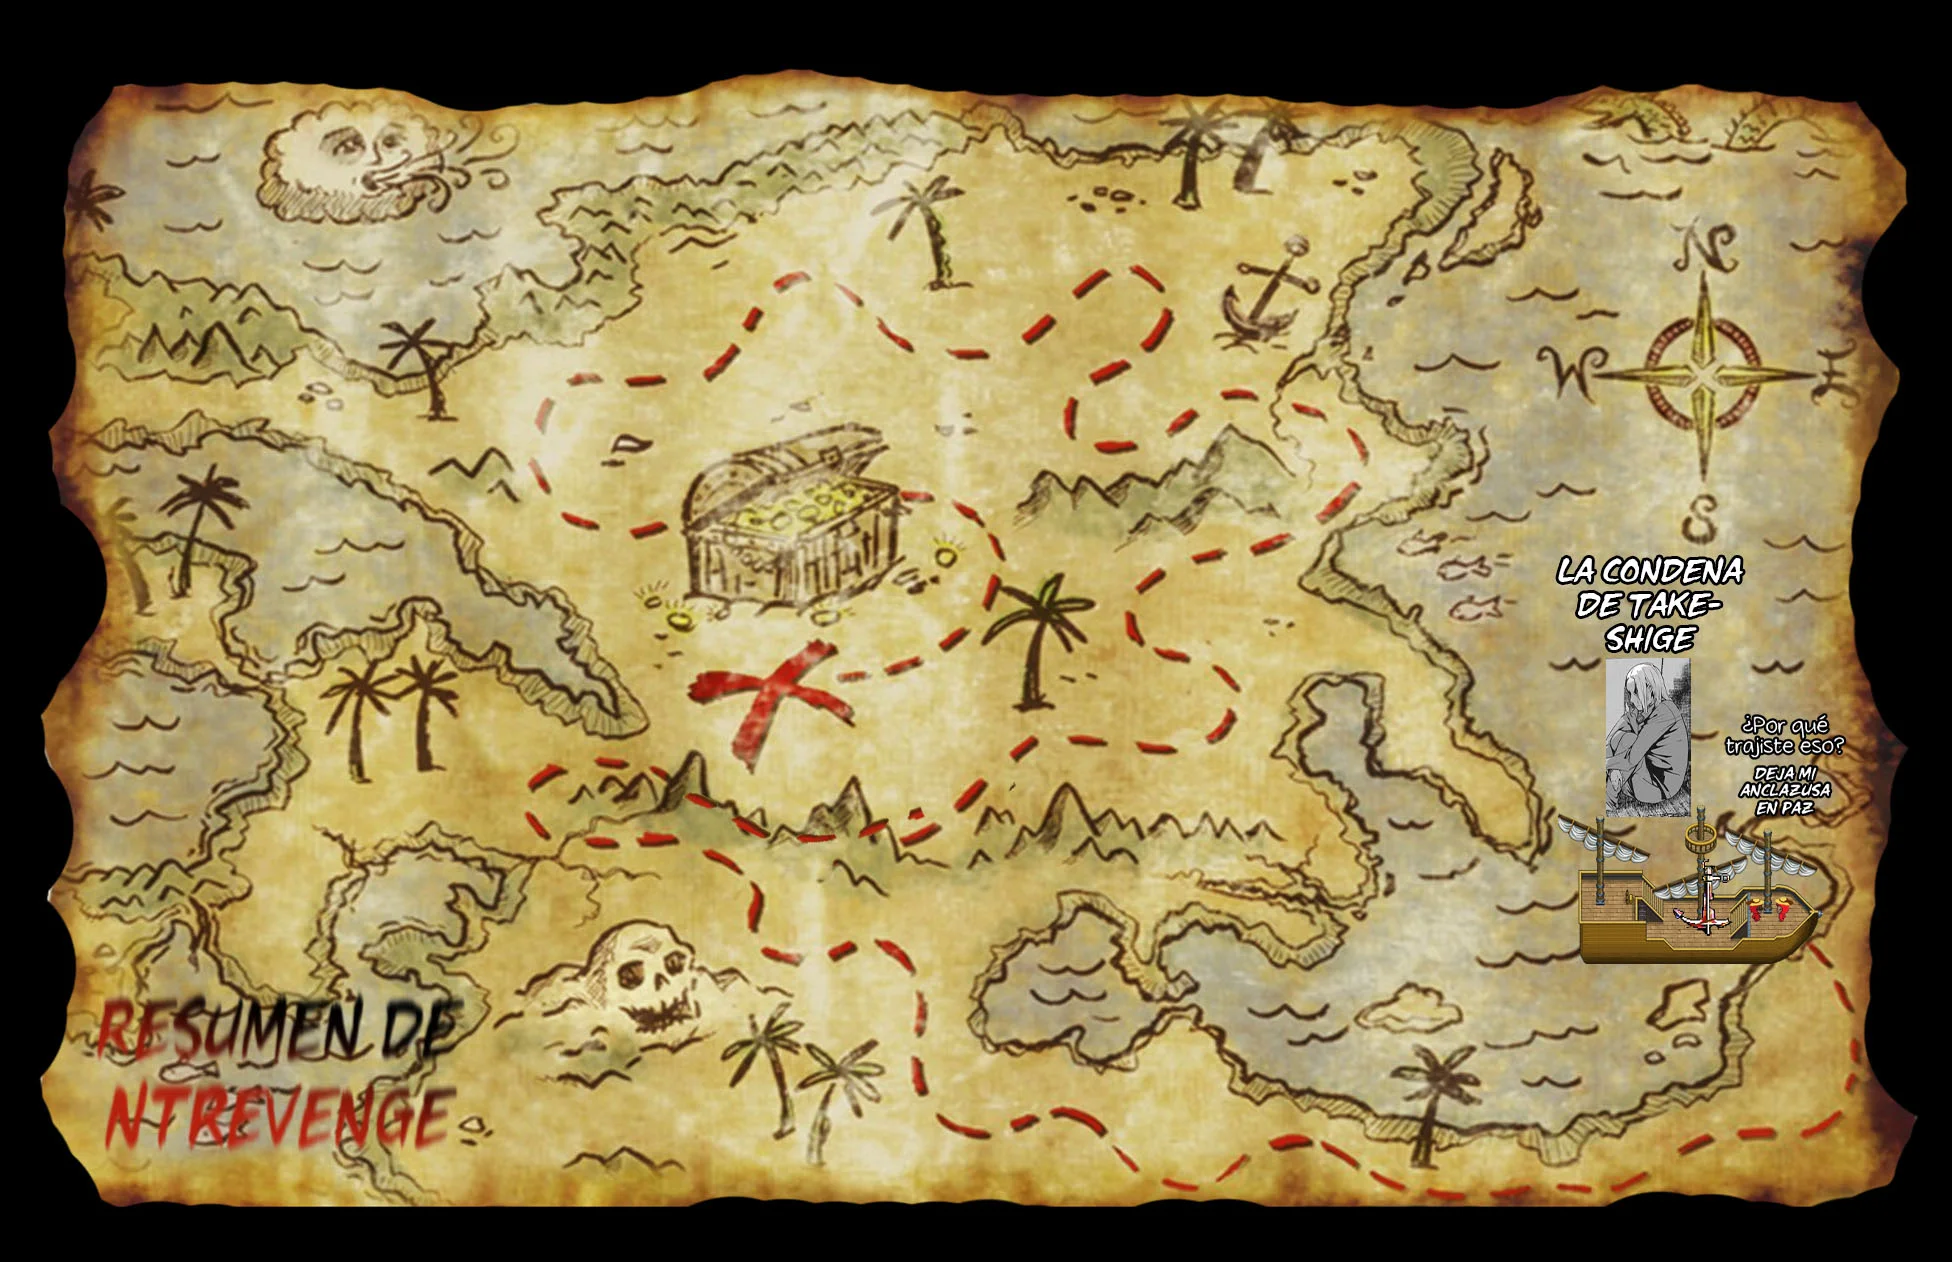 N
W
E
S
LA CONDENA
DE TAKE-
SHIGE
¿Por qué
trajiste eso?
DEJA MI
ANCLAZUSA
EN PAZ
RESUMEN DE
NTREVENGE